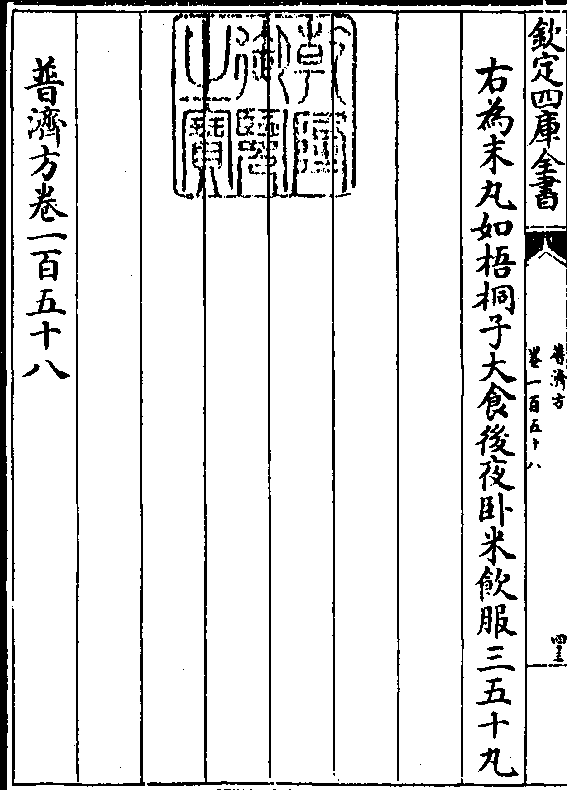 欽定四庫全書
普濟方
卷一百五十八
四十三
右為末丸如梧桐子大食後夜卧米飲服三五十丸
乾隆御覽之寶
普濟方卷一百五十八